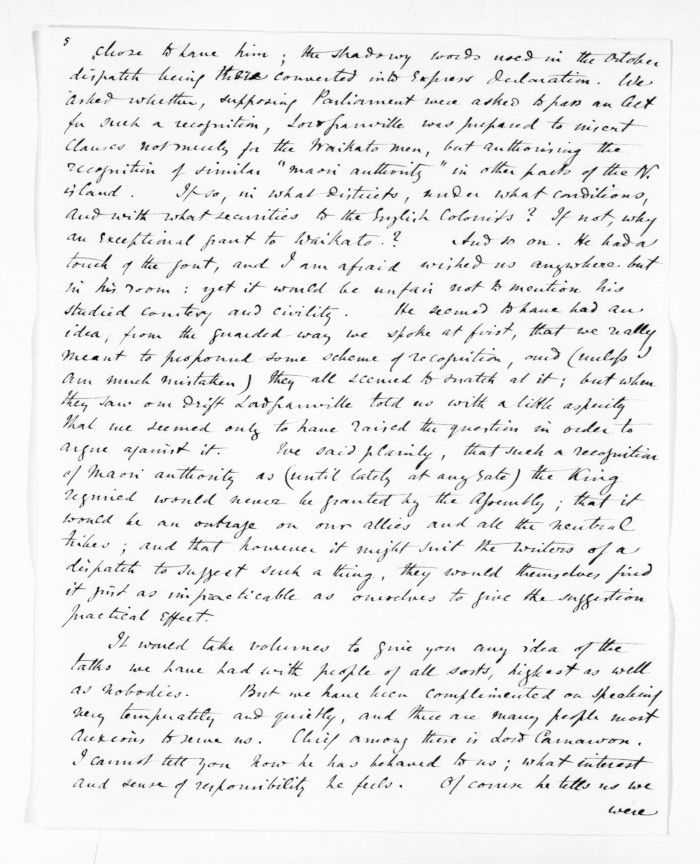 5
chose to have him; the shadowy words used in the October
dispatch being there converted into Express declaration. We
asked whether, supposing Parliament were asked to pass an Act
for such a recognition, Lord Granville was prepared to insert
clauses not merely for the Waikato men, but authorising the
recognition of similar "maori authority" in other parts of the N.
island. If so, in what districts, under what conditions,
and with what securities to the English Colonists? If not, why
an exceptional grant to Waikato? And so on. He had a
touch of the gout, and I am afraid wished us anywhere but
in his room: yet it would be unfair not to mention his
studied courtesy and civility. He seemed to have had an
idea, from the guarded way we spoke at first, that we really
meant to propound some scheme of recognition, and (unless I
am much mistaken) they all seemed to snatch at it; but when
they saw our drift Lord Granville told us with a little asperity
that we seemed only to have raised the question in order to
argue against it. We said plainly, that such a recognition
of Maori authority as (until lately at any rate) the King
required would never be granted by the Assembly; that it
would be an outrage on our allies and all the neutral
tribes; and that however it might suit the writers of a
dispatch to suggest such a thing, they would themselves find
it just as impracticable as ourselves to give the suggestion
practical effect.
It would take volumes to give you any idea of the
talks we have had with people of all sorts, highest as well
as nobodies. But we have been complimented on speaking
very temperately and quietly, and there are many people most
anxious to serve us. Chief among these is Lord Carnarvon.
I cannot tell you how he has behaved to us; what interest
and sense of responsibility he feels. Of course he tells us we
were